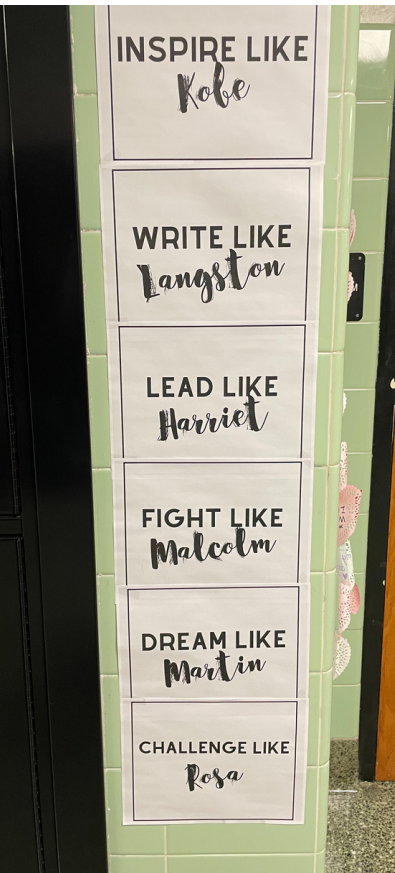 INSPIRE LIKE
Kobe
WRITE LIKE
Langston
LEAD LIKE
Harriet
FIGHT LIKE
Malcolm
DREAM LIKE
Martin
CHALLENGE LIKE
Rosa